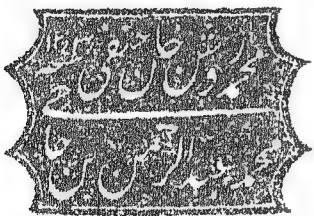 محمد روشن خان حنفی
محمد عبد الرحمن بن حاجی